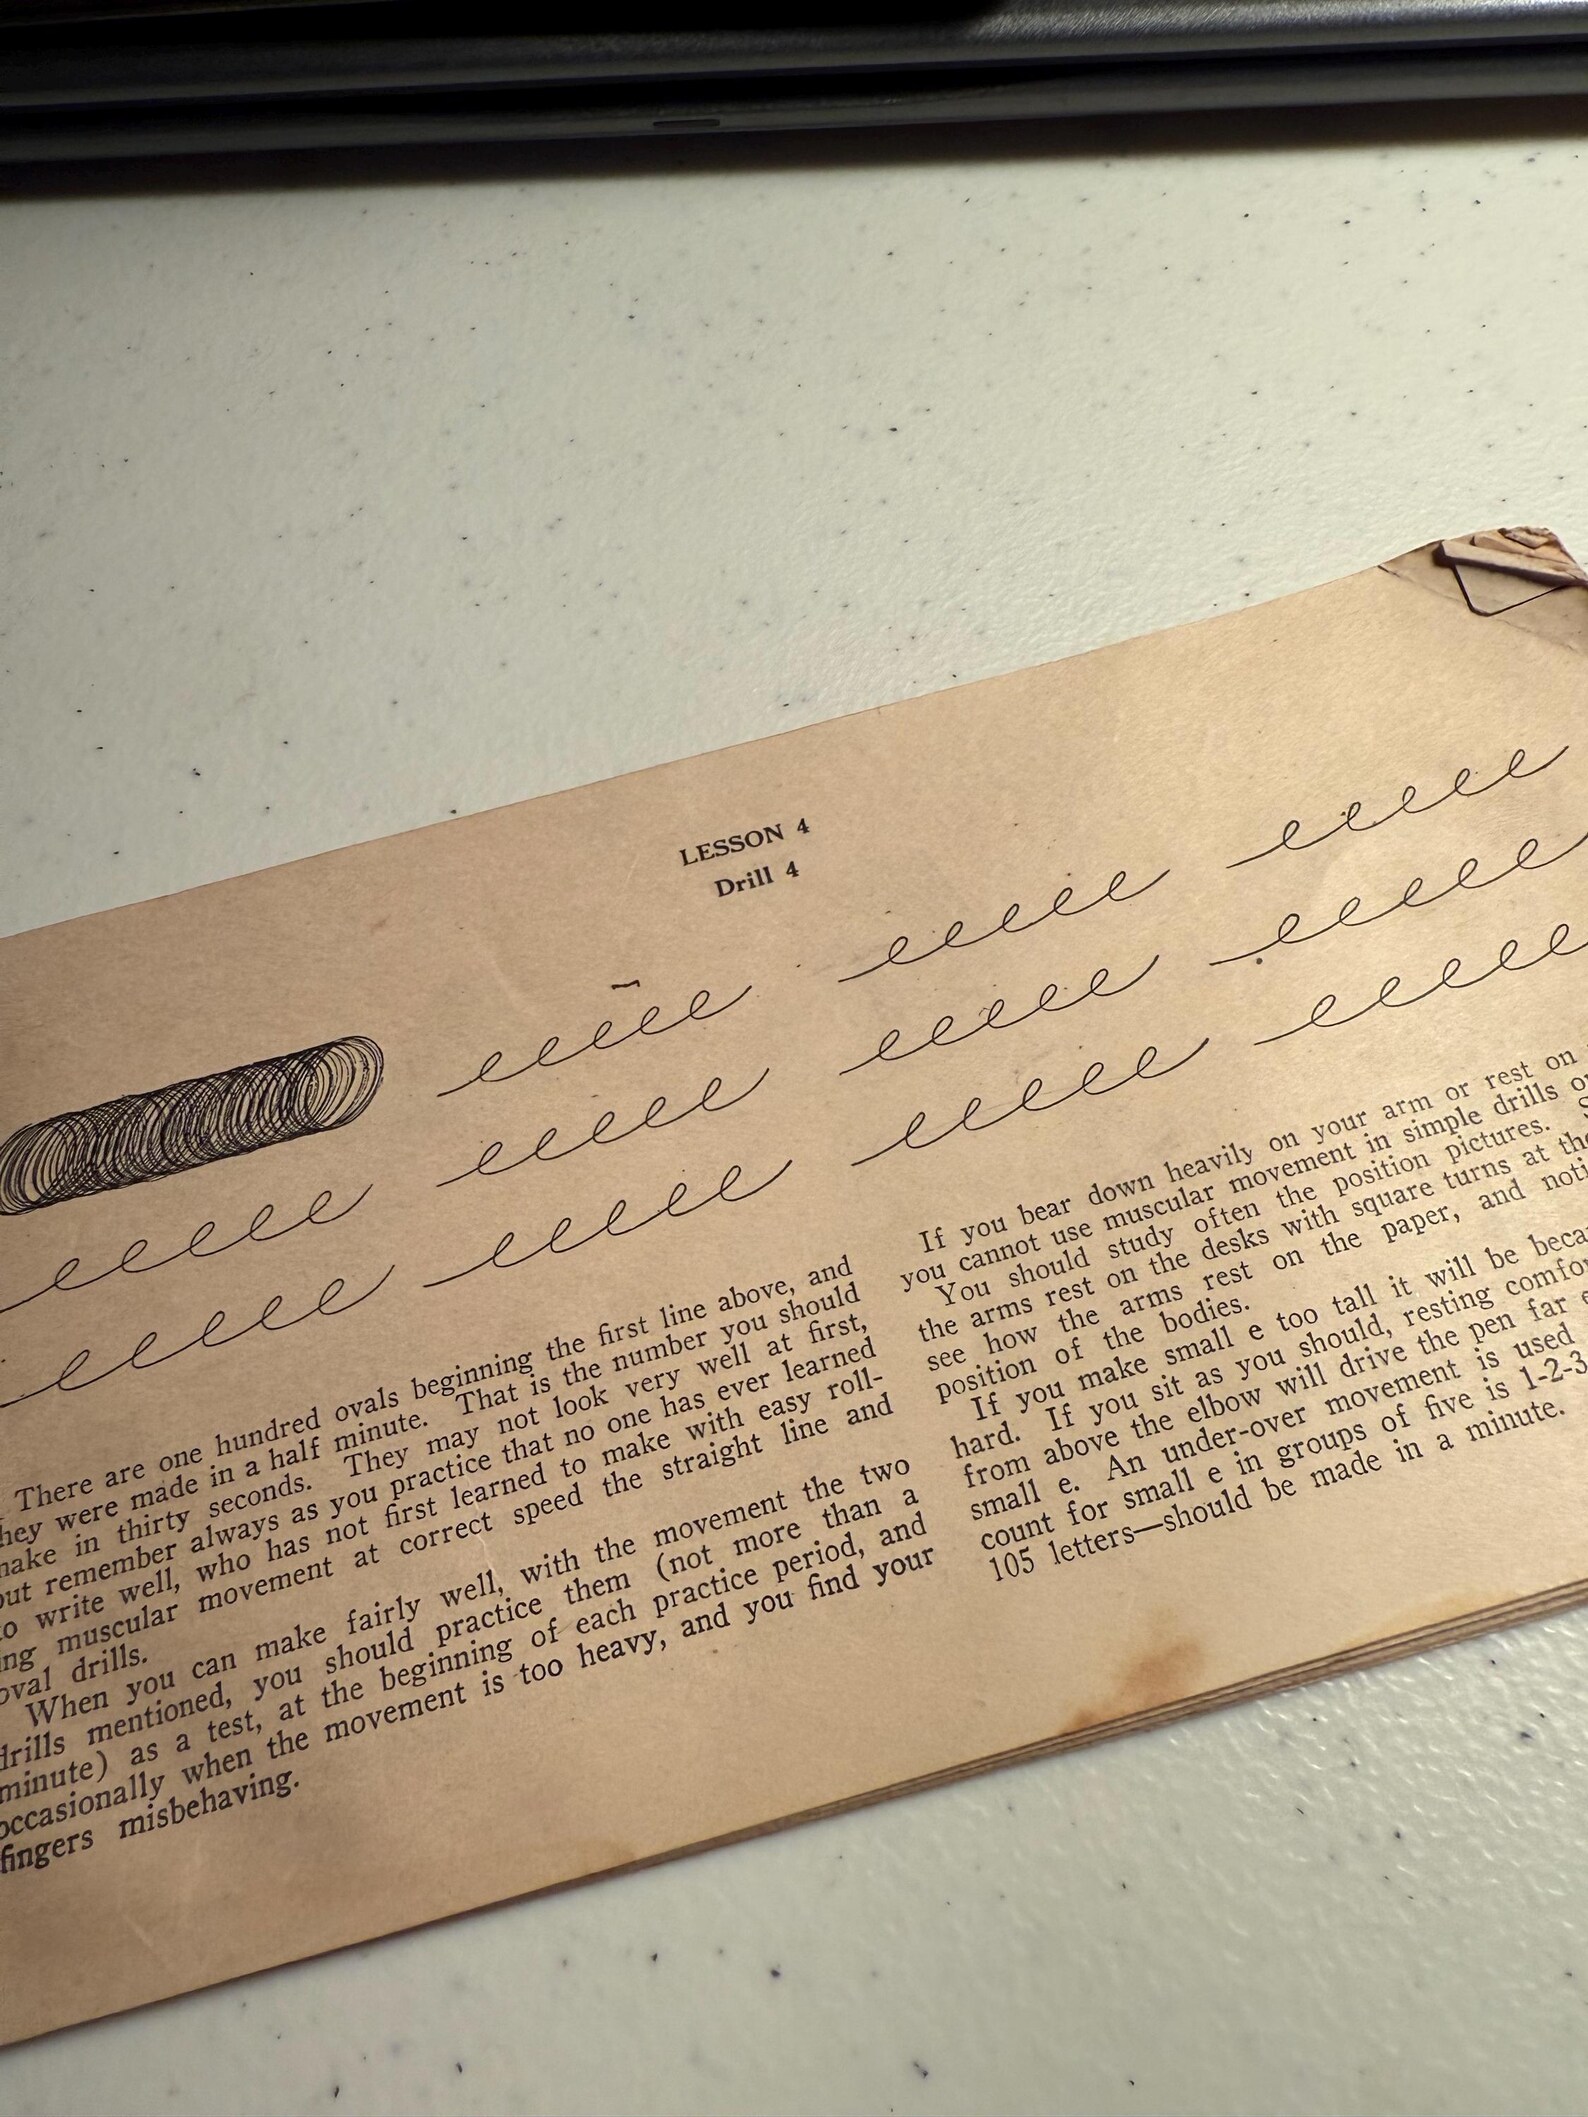 LESSON 4
Drill 4
e e e e e e e e e e e e e e e
e e e e e e e e e e e e e e e e e e e e
e e e e e e e e e e e e e e e e e e e e
There are one hundred ovals beginning the first line above, and
they were made in a half minute. That is the number you should
make in thirty seconds. They may not look very well at first,
but remember always as you practice that no one has ever learned
to write well, who has not first learned to make with easy roll-
ing muscular movement at correct speed the straight line and
oval drills.
When you can make fairly well, with the movement the two
drills mentioned, you should practice them (not more than a
minute) as a test, at the beginning of each practice period, and
occasionally when the movement is too heavy, and you find your
fingers misbehaving.
If you bear down heavily on your arm or rest on
you cannot use muscular movement in simple drills
You should study often the position pictures.
the arms rest on the desks with square turns at the
see how the arms rest on the paper, and
position of the bodies.
If you make small e too tall it will be
hard. If you sit as you should, resting
from above the elbow will drive the pen far
small e. An under-over movement is used
count for small e in groups of five is 1-2-3
105 letters—should be made in a minute.